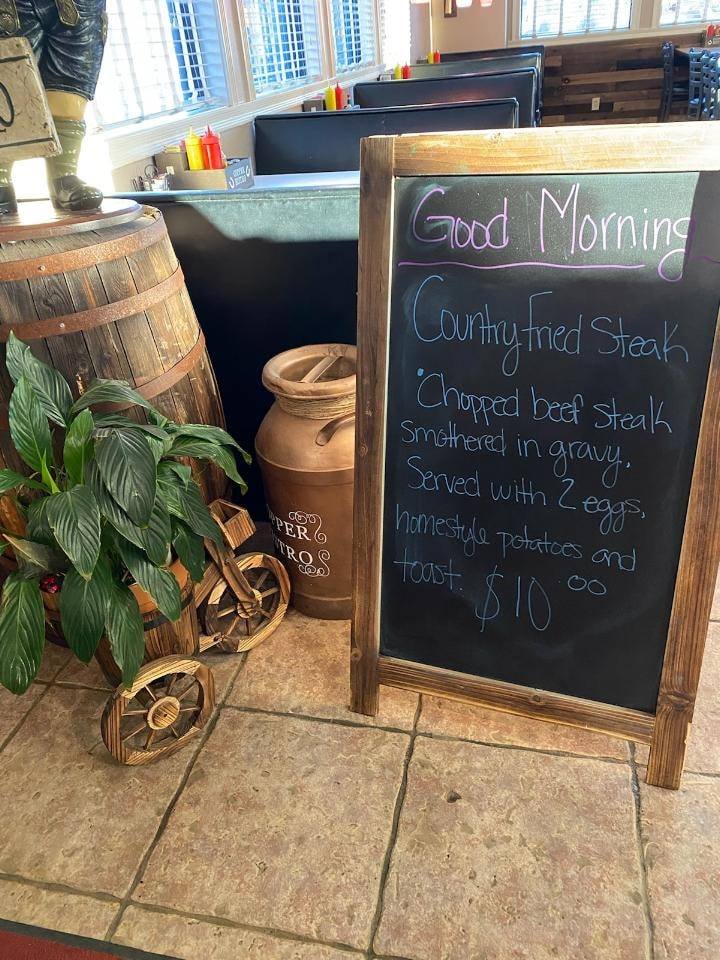 Good Morning
Country Fried Steak
•Chopped beef steak
smothered in gravy.
Served with 2 eggs,
homestyle potatoes and
toast. $10⁰⁰